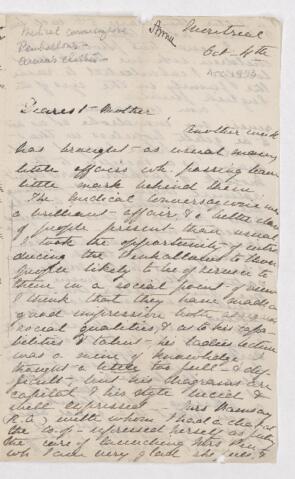 Medical conversazione
Penhallows -
Montreal
Oct 4th
Dearest Mother
Another week
has brought as usual many
little affairs wh. passing leave
little mark behind them.
The Medical Conversazione was
a brilliant affair, & a better class
of people present than usual
I took the opportunity of intro
ducing the Penhallows to those
people likely to be of service to
them in a social point of view
I think that they have made a
good impression both as regards
social qualities & as to his capa
bilities & talent - his ladies lecture
was a mine of knowledge I
thought a little too full & dif-
ficult - but his diagrams are
capital & his style lucid &
well expressed - Mrs Ramsay
with whom I had a chat at
the expressed herself as
the care of launching Mrs Pen.
wh I am very glad she feels, &